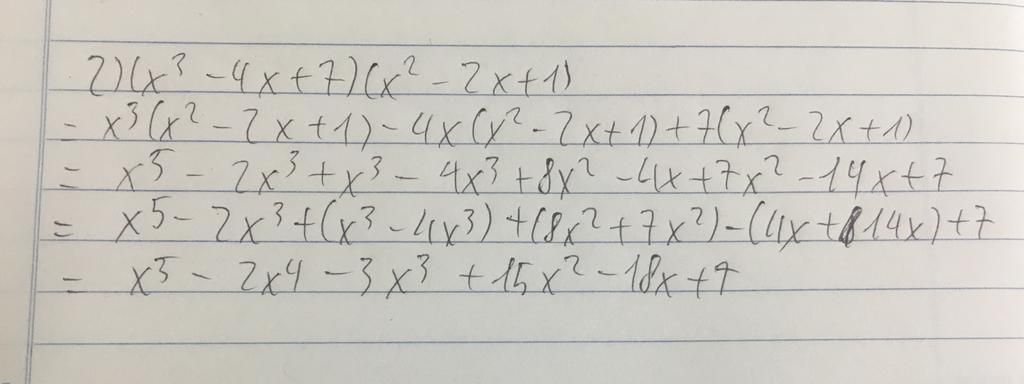 2) (x³ - 4x + 7)(x² - 2x + 1)
= x³(x² - 2x + 1) - 4x(x² - 2x + 1) + 7(x² - 2x + 1)
= x⁵ - 2x³ + x³ - 4x³ + 8x² - 4x + 7x² - 14x + 7
= x⁵ - 2x³ + (x³ - 4x³) + (8x² + 7x²) - (4x + 14x) + 7
= x⁵ - 2x4 - 3x³ + 15x² - 18x + 7